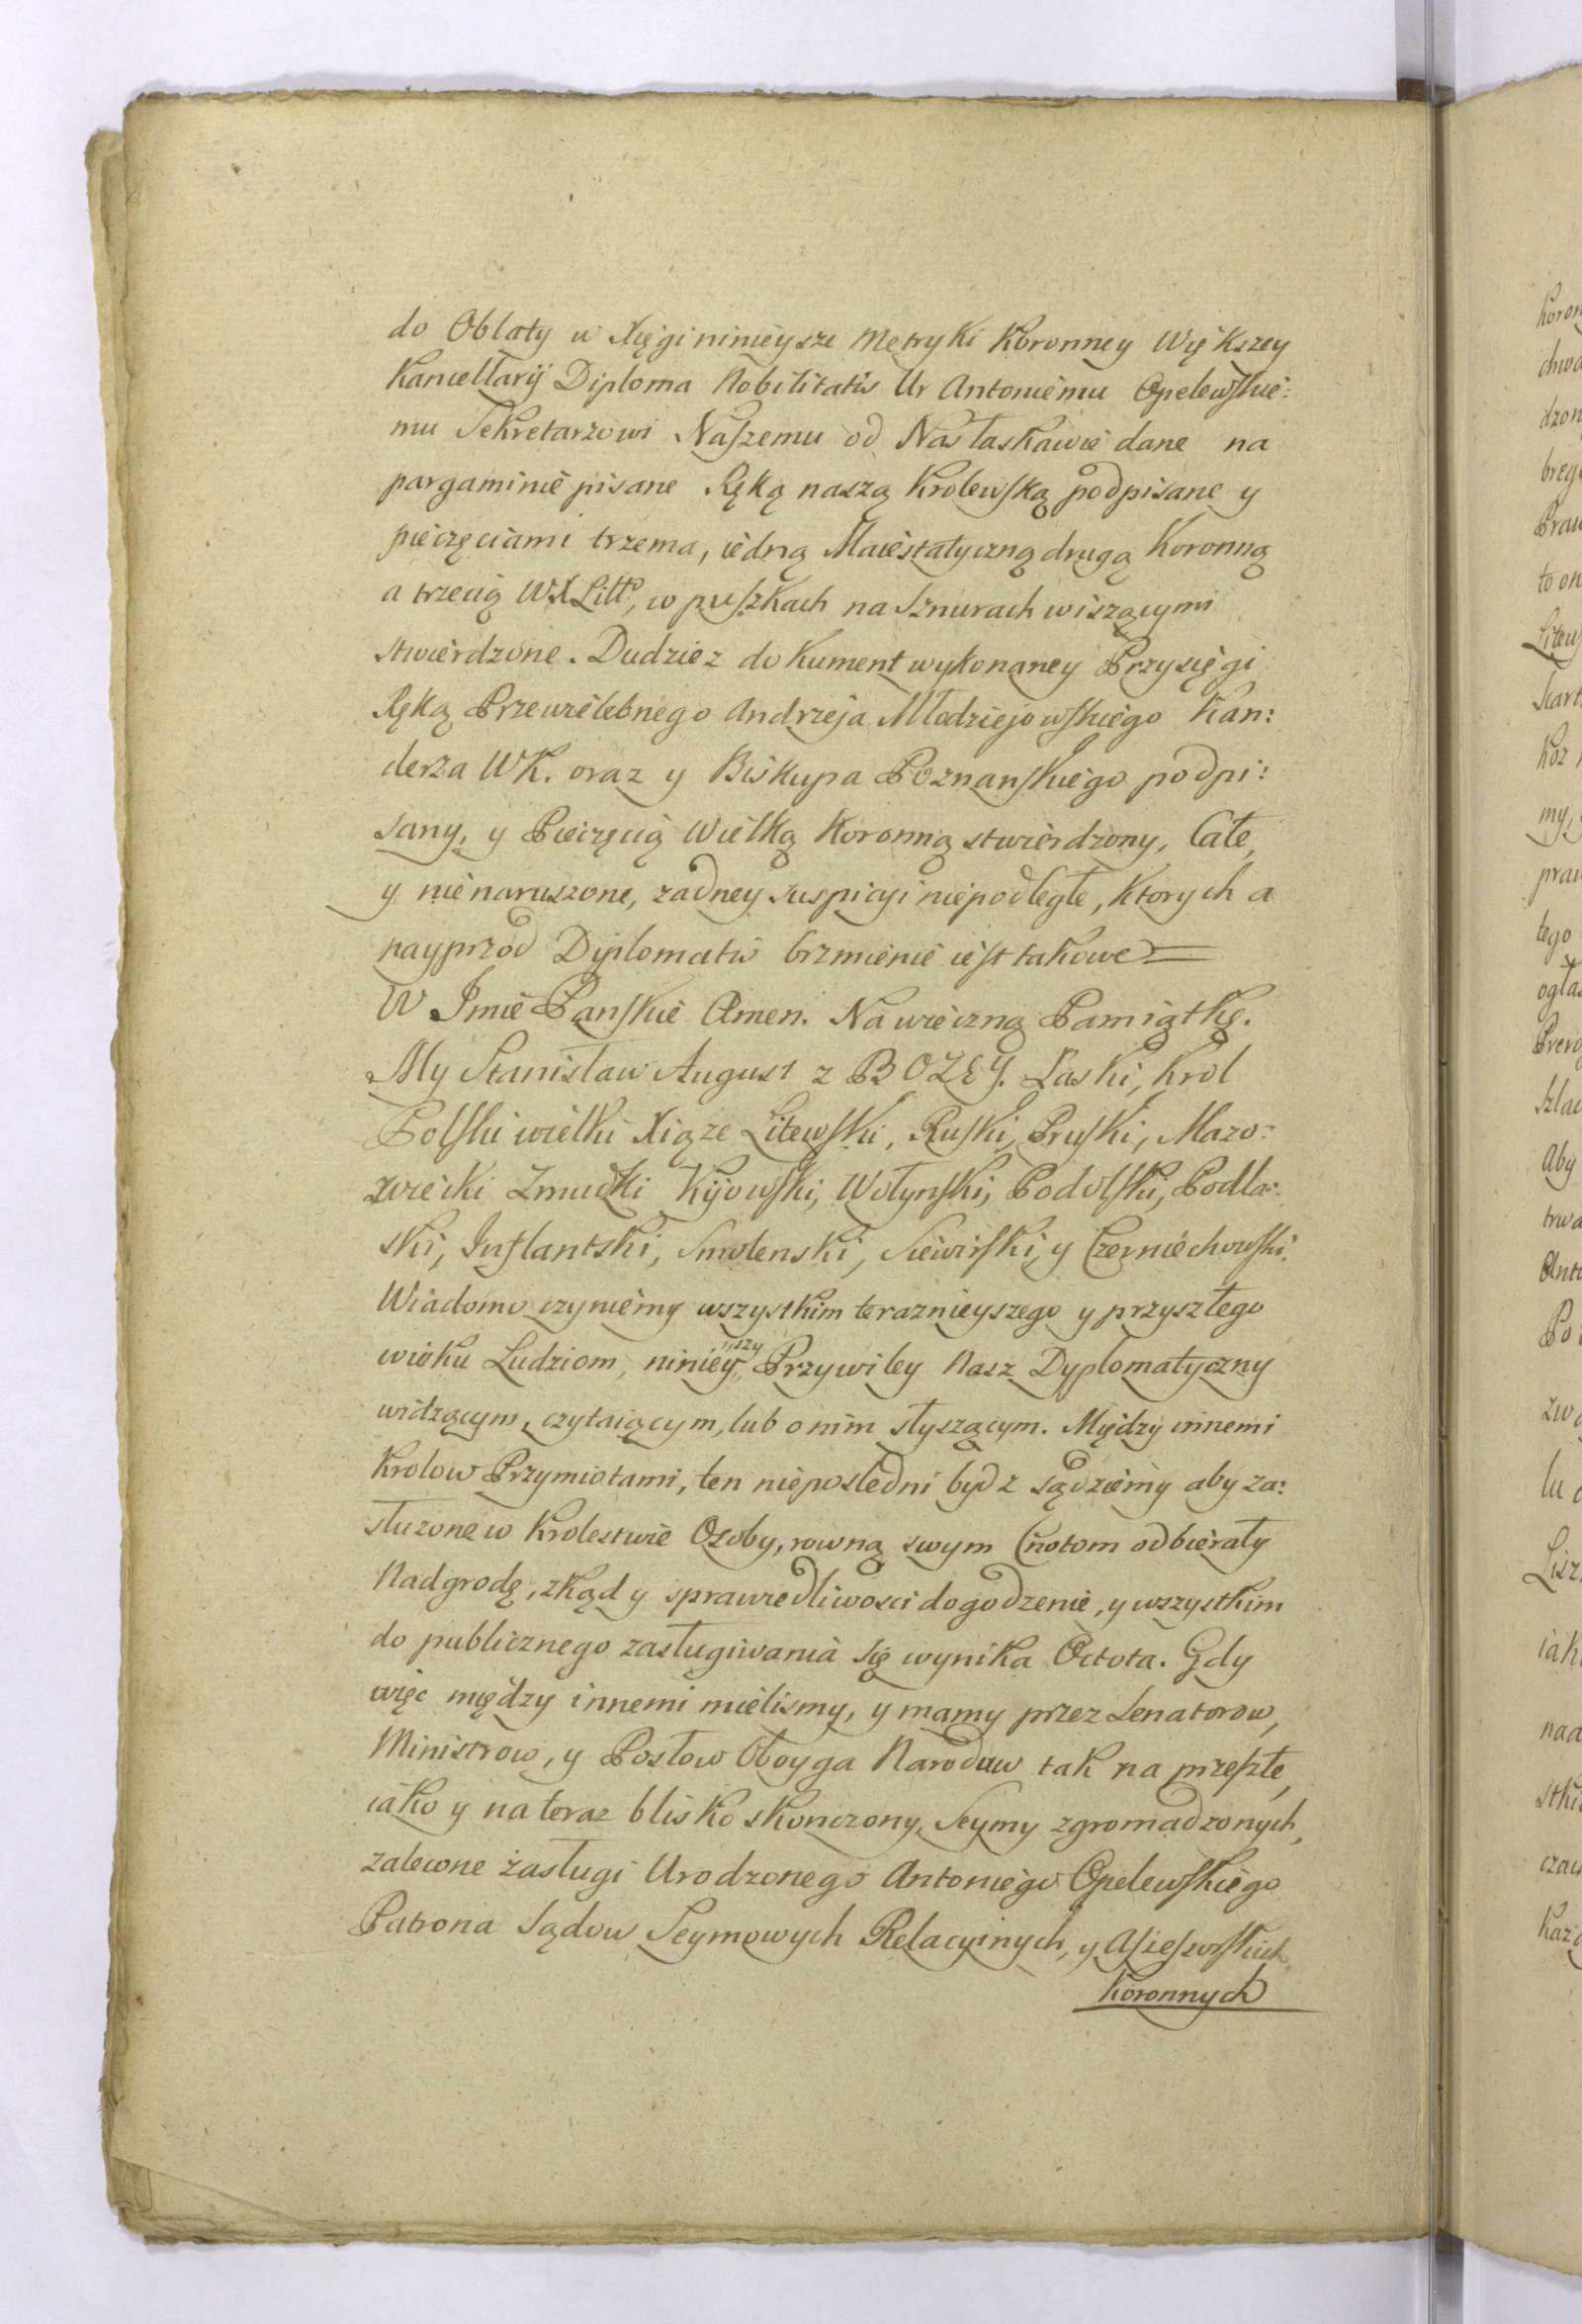 do Oblaty w Xięgi ninieysze Metryki Koronney Większey
Kancellaryi Diploma Nobilitatis Ur Antoniemu Opelewskie:
mu Sekretarzowi Naszemu od Nas łaskawie dane na
pargaminie pisane Ręką naszą Krolewską podpisane y
pieczęciami trzema, iedną Maiestatyczną drugą Koronną
a trzecią WXLitto, w puszkach na Sznurach wiszącymi
stwierdzone. Dudziez dokument wykonaney Przysięgi
Ręką Przewielebnego Andrzeja Młodziejowskiego Kan:
clerza WK. oraz y Biskupa Poznanskiego podpi:
sany, y Pieczęcią Wielką Koronną stwierdzony, Całe,
y nienaruszone, zadney suspicyi niepodległe, Ktorych a
nayprzod Dyplomatis brzmienie iest takowe=
W Imie Panskie Amen. Na wieczną Pamiątkę.
My Stanisław August z BOZEY. Łaski, Krol
Polski wielki Xiąze Litewski, Ruski, Pruski, Mazo:
wiecki Zmudzki Kijowski, Wołynski, Podolski, Podla:
ski, Inflantski, Smolenski, Siewirski, y Czerniechowski.
Wiadomo czyniemy wszystkim teraznieyszego y przyszłego
wieku Ludziom, ninieyszy Przywiley Nasz Dyplomatyczny
widzącym, czytaiącym, lub o nim słyszącym. Między innemi
Krolow Przymiotami, ten nieposledni bydz sądziemy aby za:
słuzone w Krolestwie Osoby, rowną swym Cnotom odbierały
Nadgrodę, zkąd y sprawiedliwosci dogodzenie, y wszystkim
do publicznego zasługiwania się wynika Octota. Gdy
więc między innemi mielismy, y mamy przez Senatorow,
Ministrow, y Posłow Oboyga Narodow tak na przeszłe,
iako y na teraz blisko skonczony, Seymy zgromadzonych,
zalecone zasługi Urodzonego Antoniego Opelewskiego
Patrona Sądow Seymowych Relacyinych, y Assessorskich
Koronnych